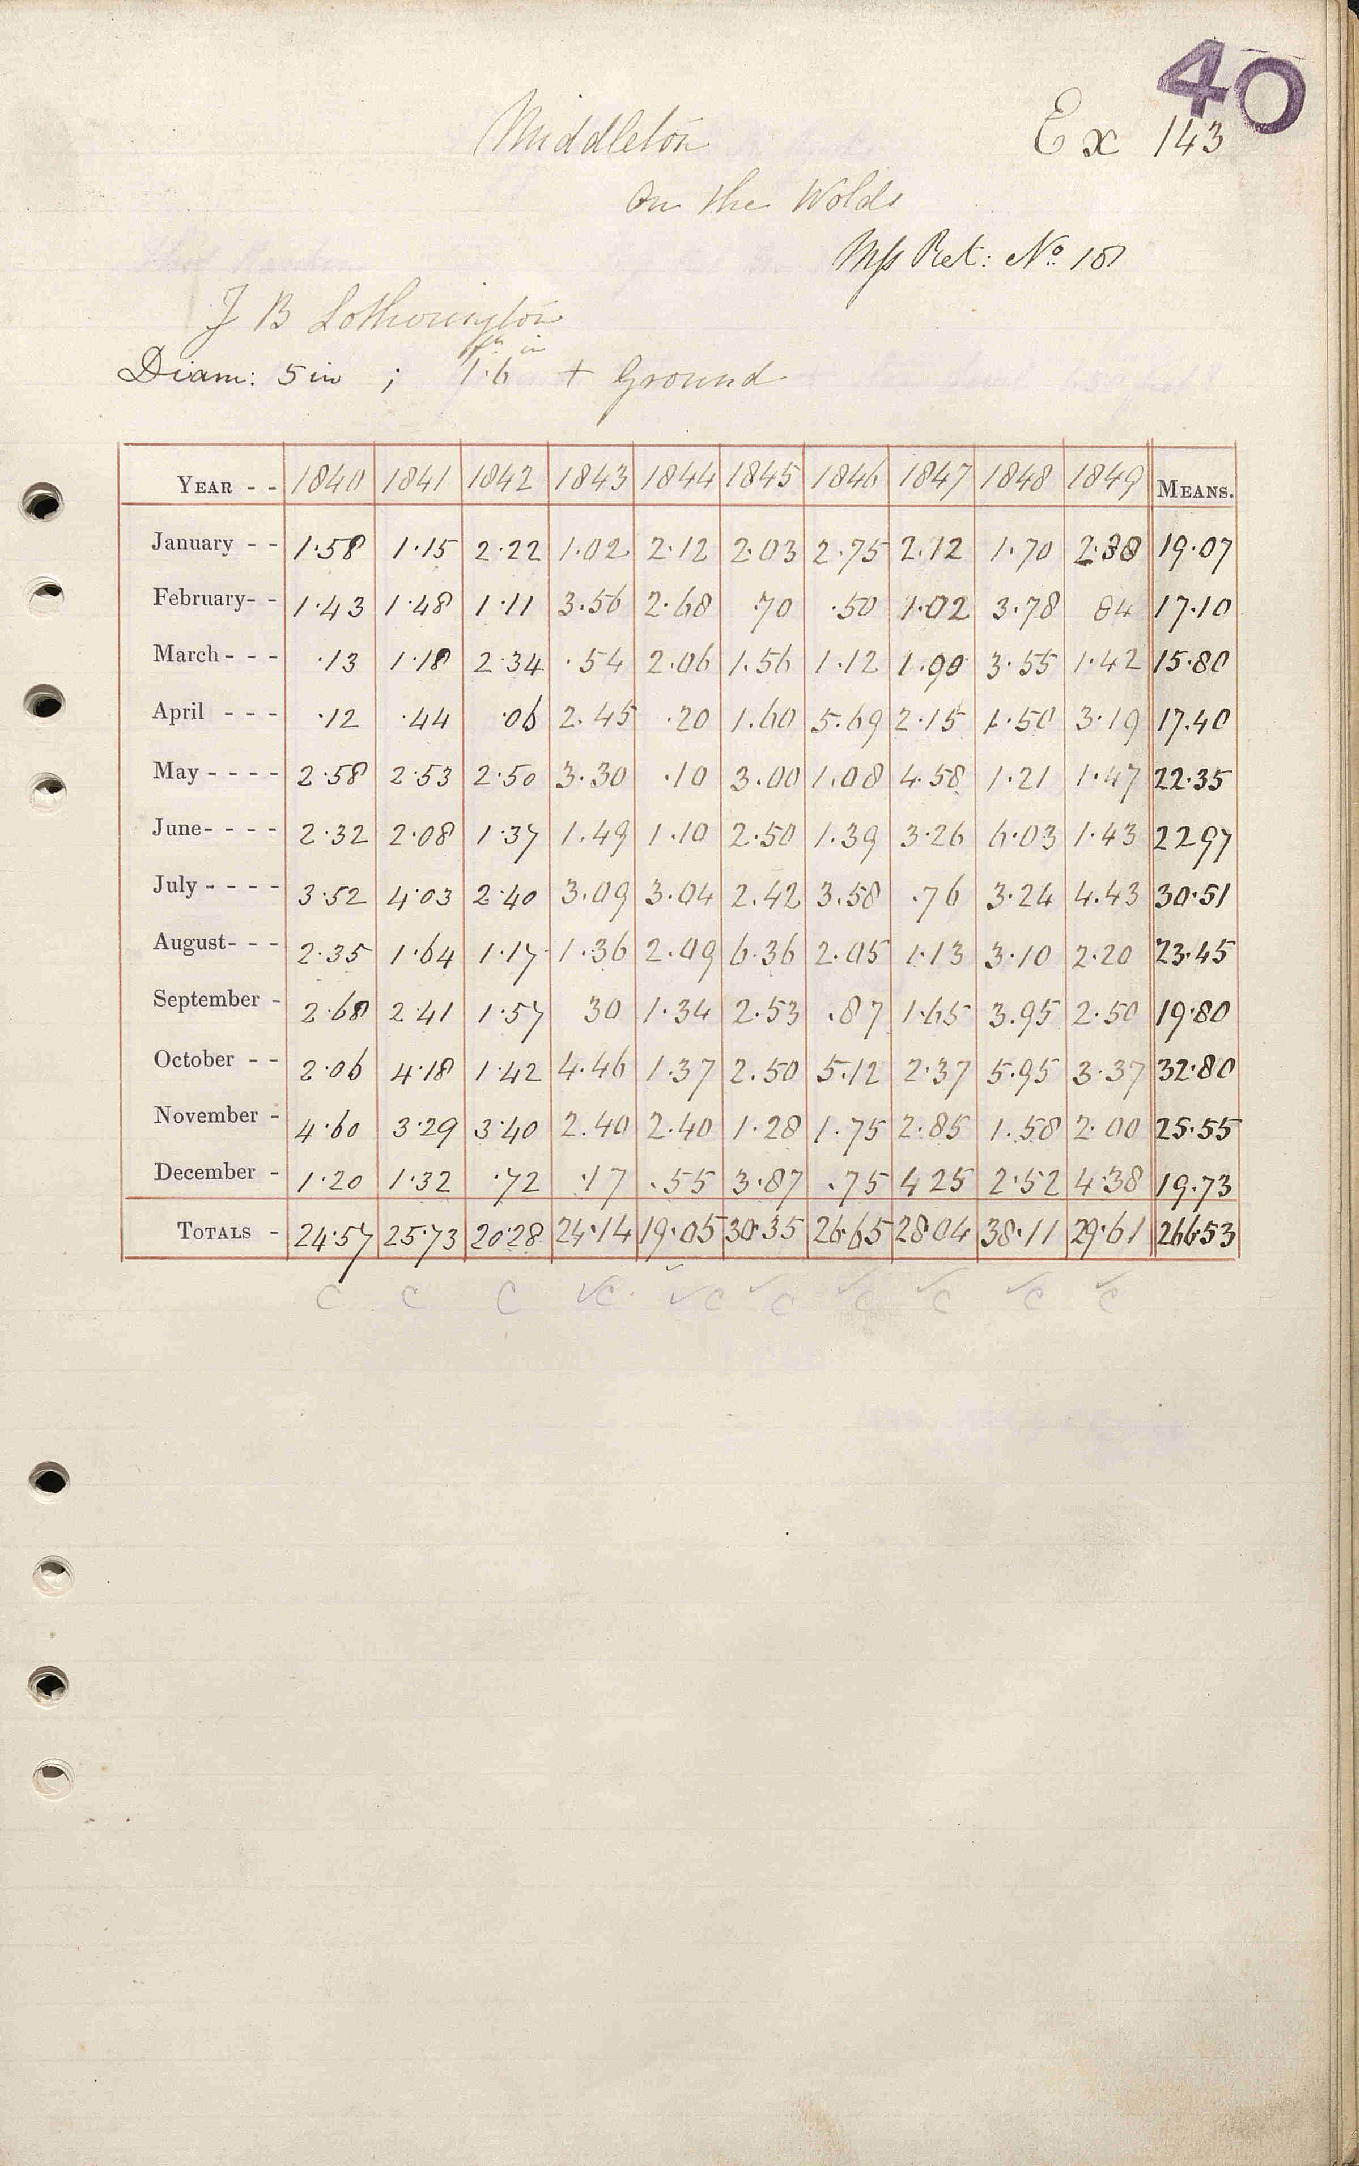 40
Middleton Ex 143
on the Wolds
Mss Ret: No 181
J B Lotherington
Diam: 5 in ; 1 ft 6 in + Ground
YEAR - - 1840 1841 1842 1843 1844 1845 1846 1847 1848 1849 MEANS.
January - - 1.58 1.15 2.22 1.02 2.12 2.03 2.75 2.12 1.70 2.38 19.07
February - - 1.43 1.48 1.11 3.56 2.68 .70 .50 1.02 3.78 84 17.10
March - - - .13 1.18 2.34 .54 2.06 1.56 1.12 1.90 3.55 1.42 15.80
April - - - .12 .44 .06 2.45 .20 1.60 5.69 2.15 1.50 3.19 17.40
May - - - - 2.58 2.53 2.50 3.30 .10 3.00 1.08 4.58 1.21 1.47 22.35
June - - - - 2.32 2.08 1.37 1.49 1.10 2.50 1.39 3.26 6.03 1.43 22 97
July - - - - 3.52 4.03 2.40 3.09 3.04 2.42 3.58 .76 3.24 4.43 30.51
August - - - 2.35 1.64 1.17 1.36 2.09 6.36 2.05 1.13 3.10 2.20 23.45
September - 2.68 2.41 1.57 30 1.34 2.53 .87 1.65 3.95 2.50 19.80
October - - 2.06 4.18 1.42 4.46 1.37 2.50 5.12 2.37 5.95 3.37 32.80
November - 4.60 3.29 3.40 2.40 2.40 1.28 1.75 2.85 1.58 2.00 25.55
December - 1.20 1.32 .72 .17 .55 3.87 .75 4 25 2.52 4.38 19.73
TOTALS - 24.57 25.73 20.28 24.14 19.05 30.35 26.65 28 04 38.11 29.61 266.53
C C C ✓C ✓C ✓C ✓C ✓C ✓C ✓C